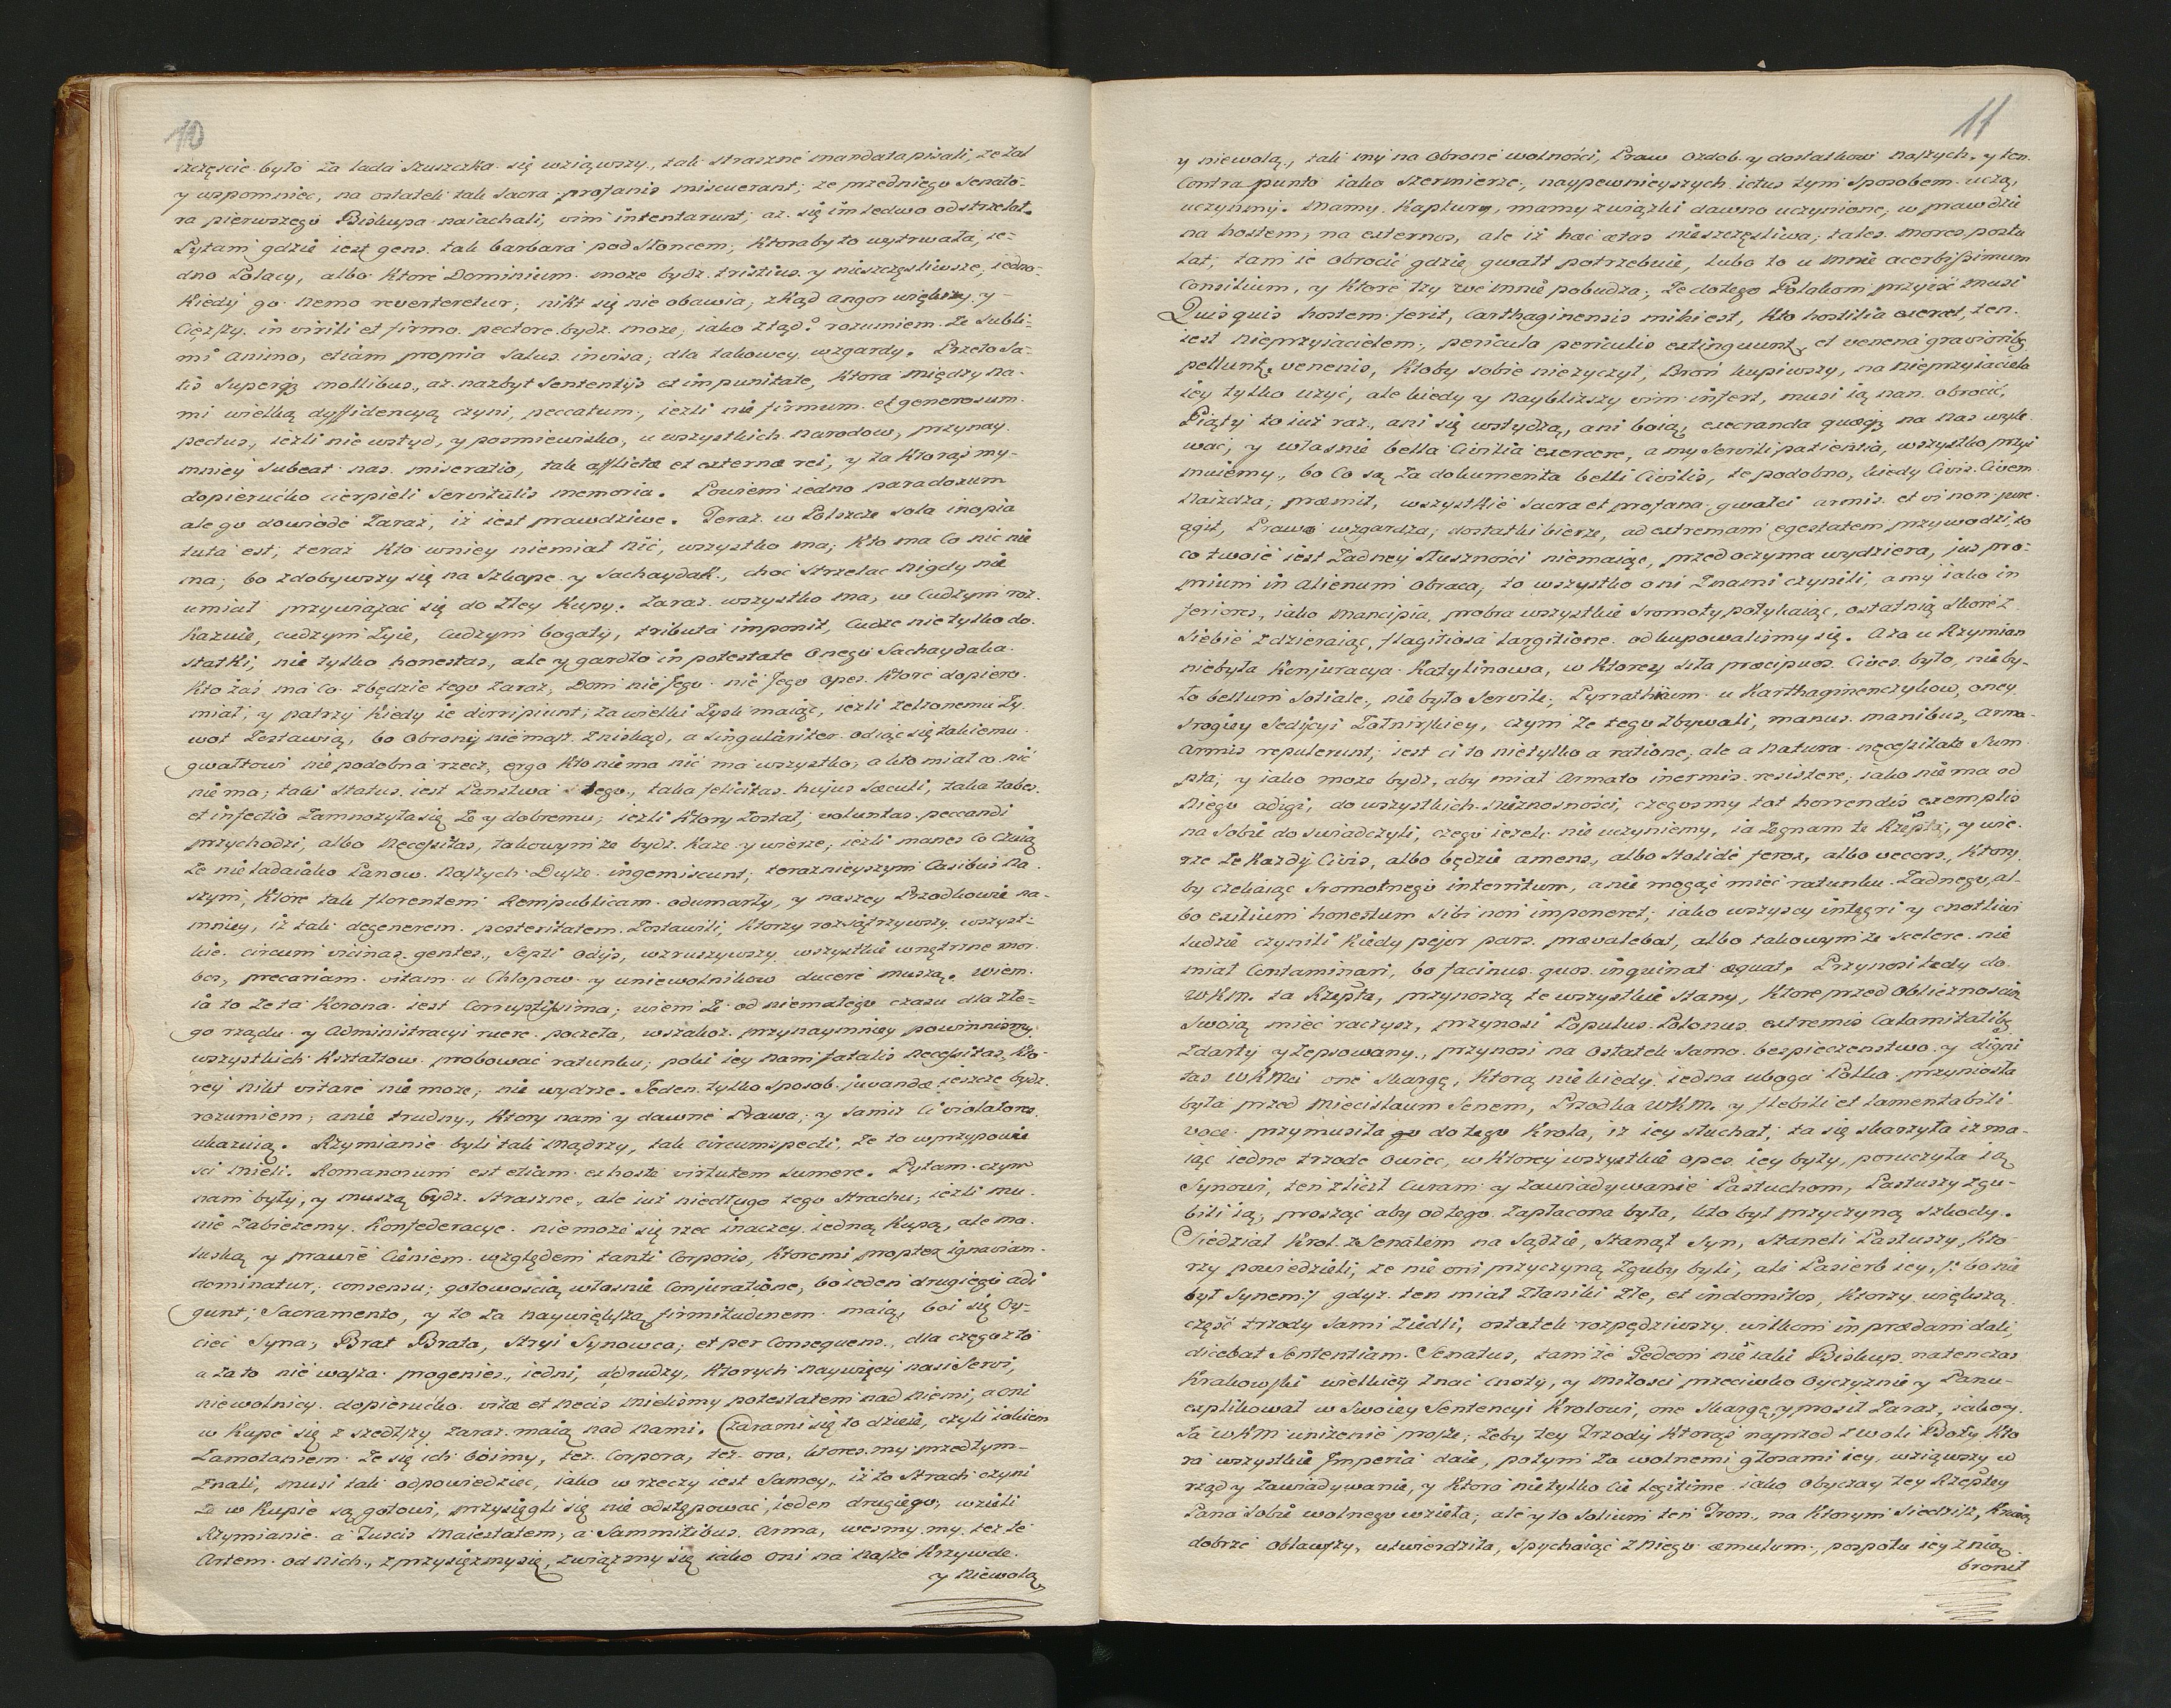 10
szczęscie było za lada Szuszczka się wziąwszy, tak straszne mandata pisali, że żal
y wspomniec, na ostatek tak Sacra profanis miscuerant; że przedniego Senato-
ra pierwszego Biskupa naiachali, vim intentarunt; aż się im ledwo odstrzelał.
Pytam gdzie iest gens tak barbara pod Słoncem; Ktoraby to wytrwała, ie-
dno Polacy, albo Ktore Dominium może bydz tristius y nieszczęsliwsze, iedno
Kiedy go nemo revereretur; nikt się nie obawia; zkąd angor większy y
Cięższy in virili et firmo pectore bydz może, iako ztąd? rozumiem że subli-
mi animo, etiam propria salus invisa; dla takowey wzgardy. Przeto Sa-
tis superq. mollibus, aż nazbyt Sententijs et impunitate, Ktora między na-
mi wielką dyffidencyą czyni, peccatum, iezli nie firmum et generosum
pectus, iezli nie wstyd, y posmiewisko, u wszystkich narodow, przynay
mniey Subeat nas miseratio, tak afflictæ et externæ rei, y ta Ktorąs my
dopierućko cierpieli Servitutis memoria. Powiem iedno paradoxum
ale go dowiode zaraz, iż iest prawdziwe. Teraz w Polszcze sola inopia
tuta est; teraz Kto wniey niemiał nic, wszystko ma; Kto ma Co nic nie
ma; bo zdobywszy się na Szkape y Sachaydak, choc strzelac nigdy nie
umiał przywiązać się do złey Kupy. Zaraz wszystko ma, w Cudzym roz-
kazuie, cudzym żyie, Cudzym bogaty, tributa imponit, Cudze nie tylko do-
statki, nie tylko honestas, ale y gardło in potestate onego Sachaydaka.
Kto zaś ma Co zbędzie tego zaraz, Dom nie Jego nie Jego opes Ktore dopiero
miał, y patrzy Kiedy ie dirripiunt; za wielki zysk maiąc, iezli zelzonemu ży-
wot zostawią, bo Obrony niemasz zniskąd, a singulariter odiąc się takiemu
gwałtowi nie podobna rzecz, ergo Kto nie ma nic ma wszystko; a kto miał co nic
nie ma; taki Status iest Panstwa tego, taka felicitas hujus sæculi, taka tabes
et infectio zamnożyła się że y dobremu; iezli Ktory został, voluntas peccandi
przychodzi, albo Necessitas, takowym że bydz. Każe y wierze, iezli manes Co Czuią
że nie ladaiako Panow naszych Dusze ingemiscunt; teraznieyszym Casibus na-
szym, Ktore tak florentem Rempublicam odumarły, y naszey Przodkowie na-
mniey, iż tak degenerem posteritatem zostawili, Ktorzy rozsiątrzywszy wszyst-
kie circum vicinas gentes, Septi odijs, wzruszywszy wszystkie wnętrzne mor-
bos, precariam vitam u Chłopow y uniewolnikow ducere muszą. Wiem
ia to że ta Korona iest Corruptissima; wiem że od niemałego czasu dla złe-
go rządu y Administracyi ruere poczeła, wszakoż przynaymniey powinnismy
wszystkich Kształtow probować ratunku; poki iey nam fatalis necessitas, Kto-
rey nikt vitare nie może; nie wydrze. Jeden tylko sposob juvandæ ieszcze bydz
rozumiem; anie trudny, Ktory nam y dawne Prawa, y samiż Ci violatores
ukazuią. Rzymianie byli tak Mądrzy, tak circumspecti, że to w przypowie
sci mieli. Romanorum est etiam ex hoste virtutem sumere. Pytam czym
nam były, y muszą bydz straszne, ale iuż niedługo tego Strachu; iezli mu
nie zabieżemy. Konfederacye niemoże się rzec inaczey iedną Kupą, ale ma-
luską y prawie Cieniem względem tanti Corporis, Ktoremi propter ignaviam
dominatur; consensu; gotowoscią własnie Conjuratione, bo ieden drugiego adi
gunt; Sacramento, y to za naywiększą firmitudinem maią, boi się Oy-
ciec Syna, Brat Brata, Stryi Synowca; et per Consequens, dla częgoż to
a za to nie wasza progenies, iedni, a drudzy, Ktorych naywięcy nasi Servi,
niewolnicy dopierućko vitæ et necis mielismy potestatem nad niemi, a oni
w Kupe się z szedłszy zaraz maią nad nami. Czarami się to dzieie, czyli iakiem
Zamotaniem że się ich boimy, też Corpora, też ora, ktores my przedtym
Znali, musi tak odpowiedziec, iako w rzeczy iest Samey, iż to Strach czyni
że w Kupie są gotowi, przysięgli się nie odstępować, ieden drugiego, wzieli
Rzymianie a Tuscis Maiestatem, a Samnitibus Arma, wezmy my też te
Artem od nich, zprzysięzmy się, związmy się iako oni na nasze Krzywde
y Niewolą
11
y niewolą, tak my na Obrone wolnosci, Praw ozdob y dostatkow naszych, y ten
Contra punto iako Szermierze, naypewnieyszych ictus tym Sposobem uczą,
uczynmy. Mamy Kaptury, mamy związki dawno uczynione, w prawdzie
na hostem, na externos, ale iż hæc ætas nieszczęsliwa; tales mores postu
lat, tam ie Obrocić gdzie gwałt potrzebuie, lubo to u Mnie acerbissimum
Consilium, y Ktore łzy we mnie pobudza, że do tego Polakom przyisć musi
Quis quis hostem ferit, Carthaginensis mihi est, Kto hostilia exercet, ten
iest nieprzyiacielem, pericula periculis extinguunt, et venena gravioribq
pellunt. venenis, Ktoby sobie nieżyczył, Broń kupiwszy, na nieprzyiaciela
iey tylko użyć, ale kiedy y naybliższy vim infert, musi ią nań obrocić.
Piąty to iuż raz, ani się wstydzą, ani boią, execranda quæq. na nas wyle
wac, y własnie bella Civilia exercere, a my Servili patientia, wszystko przyi
muiemy, bo Co są za dokumenta belli Civilis, że podobno, kiedy Civis Civem
naizdża, præmit, wszystkie Sacra et profana gwałci armis et vi non jure
agit, Prawo wzgardza, dostatki bierze, ad extremam egestatem przywodzi, to
co twoie iest żadney słusznosci niemaiąc, przed oczyma wydziera, jus pro-
prium in alienum obraca, to wszystko oni znami czynili, a my iako in
feriores, iako Mancipia, probra wszystkie Sromoty połykaiąc, ostatnią skore z
siebie zdzieraiąc, flagitiosa largitione odkupowalismy się. Aza u Rzymian
niebyła Konjuracya Katylinowa, w Ktorey siła præcipuos Cives było, nie by-
ło bellum Sotiale, nie było Servile; Pyrrathicum u Karthaginenczykow, oney
Srogiey Sedycyi Zołnirskiey, czym że tego zbywali, manus manibus, arma
Armis repulerunt; iest ci to nietylko a ratione, ale a natura necessitate Sum
pta; y iako może bydz, aby miał Armato inermis resistere; iako nie ma od
niego adigi, do wszystkich nieznosnosci, czegosmy tot horrendis exemplis
na sobie do swiadczyli, czego iezeli nie uczyniemy, ia żegnam te Rzepta, y wie-
rze że każdy Civis, albo będzie amens, albo stolide ferox, albo vecors, Ktory
by czekaiąc Sromotnego interritum, a nie mogąc mieć ratunku żadnego, al-
bo exilium honestum sibi non imponeret; iako wszyscy integri y cnotliwi
ludzie czynili Kiedy pejor pars prævalebat, albo takowym że Scelere nie
miał Contaminari, bo facinus quos inquinat æquat. Przynosi tedy do
WKM. ta Rzepta, przynoszą te wszystkie Stany, Ktore przed Obliczonoscią
Swoią mieć raczysz, przynosi Populus Polonus extremis Calamitatibq
zdarty y zepsowany, przynosi na Ostatek Samo bespieczenstwo y digni
tas WKMci one Skargę, Ktorą niekiedy iedna uboga Polka przyniosła
była przed Miecislaum Senem, Przodka WKM. y flebili et lamentabili
voce przymusiła go do tego Krola, iż iey słuchał; ta się skarzyła iż ma-
iąc iedne trzode Owiec, w Ktorey wszystkie opes iey były, poruczyła ią
Synowi, ten zliczł Curam y zawiadywanie Pastuchom, Pastuszy zgu-
bili ią; prosząc aby odtego zapłacona była, kto był przyczyną szkody.
Siedział Krol z Senatem na Sądzie, Stanął Syn, Staneli Pastuszy, Kto-
rzy powiedzieli, że nie oni przyczyną zguby byli, ale Pasierb iey, /: bo nie
był Synem :/ gdyż ten miał Złaniki złe, et indomitos, Ktorzy większą
część trzody Sami ziedli, ostatek rozpędziwszy wilkom in prædam dali,
dicebat Sententiam Senatus, tamże Gedeon nieiaki Biskup natenczas
Krakowski wielkiey znać cnoty, y miłosci przeciwko Oyczyznie y Panu
explikował w Swoiey Sentencyi Krolowi, one Skargę, y prosił zaraz, iakoy
Ia WKM uniżenie prosze; żeby tey Trzody Ktorąs naprzod z woli Boży Kto
ra wszystkie Imperia daie, potym za wolnemi głosami iey, wziąwszy w
rząd y zawiadywanie, y Ktora nietylko Cie legitime iako Obyczay tey Rzeptey
Pana Sobie wolnego wzieła; ale y to Solium ten Tron, na Ktorym siedzisz, Krwią
dobrze oblawszy, utwierdziła, Spychaiąc zniego æmulum, pospołu iey znią
bronił